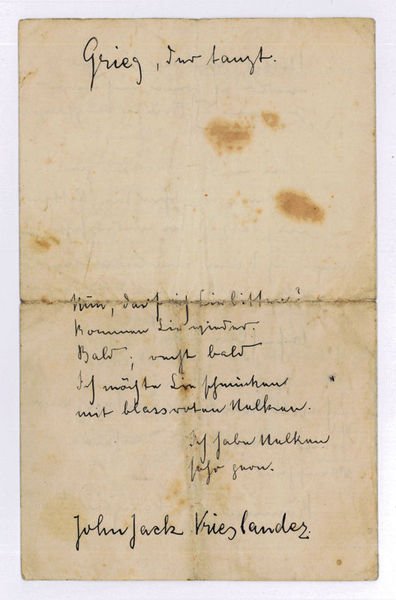 Grieg, der tanzt.
Nun, darf ich Sie bitten?
Kommen Sie wieder.
Bald, recht bald
Ich möchte Sie schmücken
mit blassroten Nelken.
Ich habe Nelken
sehr gern.
John Jack Vrieslander.